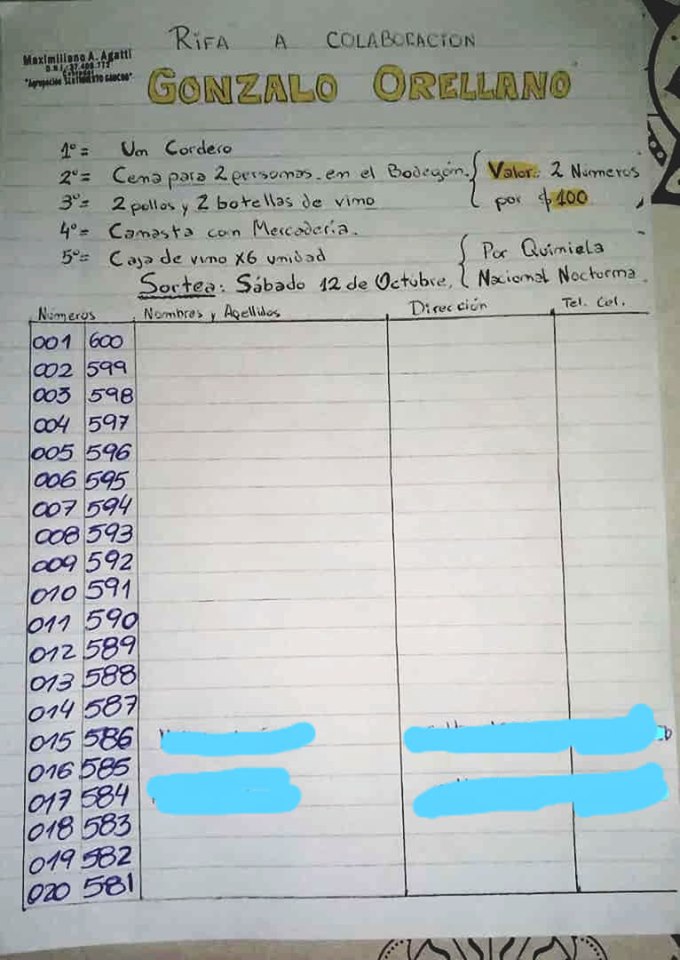 RIFA A COLABORACION
Maximiliano A. Agatti
"Agrupación SENTIMIENTO GAUCHO"
GONZALO ORELLANO
1º= Un Cordero
2º= Cena para 2 personas en el Bodegón.
3º= 2 pollos y 2 botellas de vino
Valor: 2 Números
por $100
4º= Canasta con Mercadería.
5º= Caja de vino x6 unidad
Sortea: Sábado 12 de Octubre,
Por Quiniela
Nacional Nocturna.
Números Nombres y Apellidos Dirección Tel. Cel.
001 600
002 599
003 598
004 597
005 596
006 595
007 594
008 593
009 592
010 591
011 590
012 589
013 588
014 587
015 586
016 585
017 584
018 583
019 582
020 581